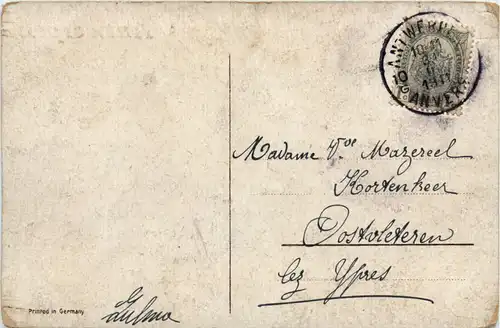 ANTWERPEN
ANVERS
Madame Vve Mazereel
Kortenkeer
Oostvleteren
lez Ypres
Printed in Germany